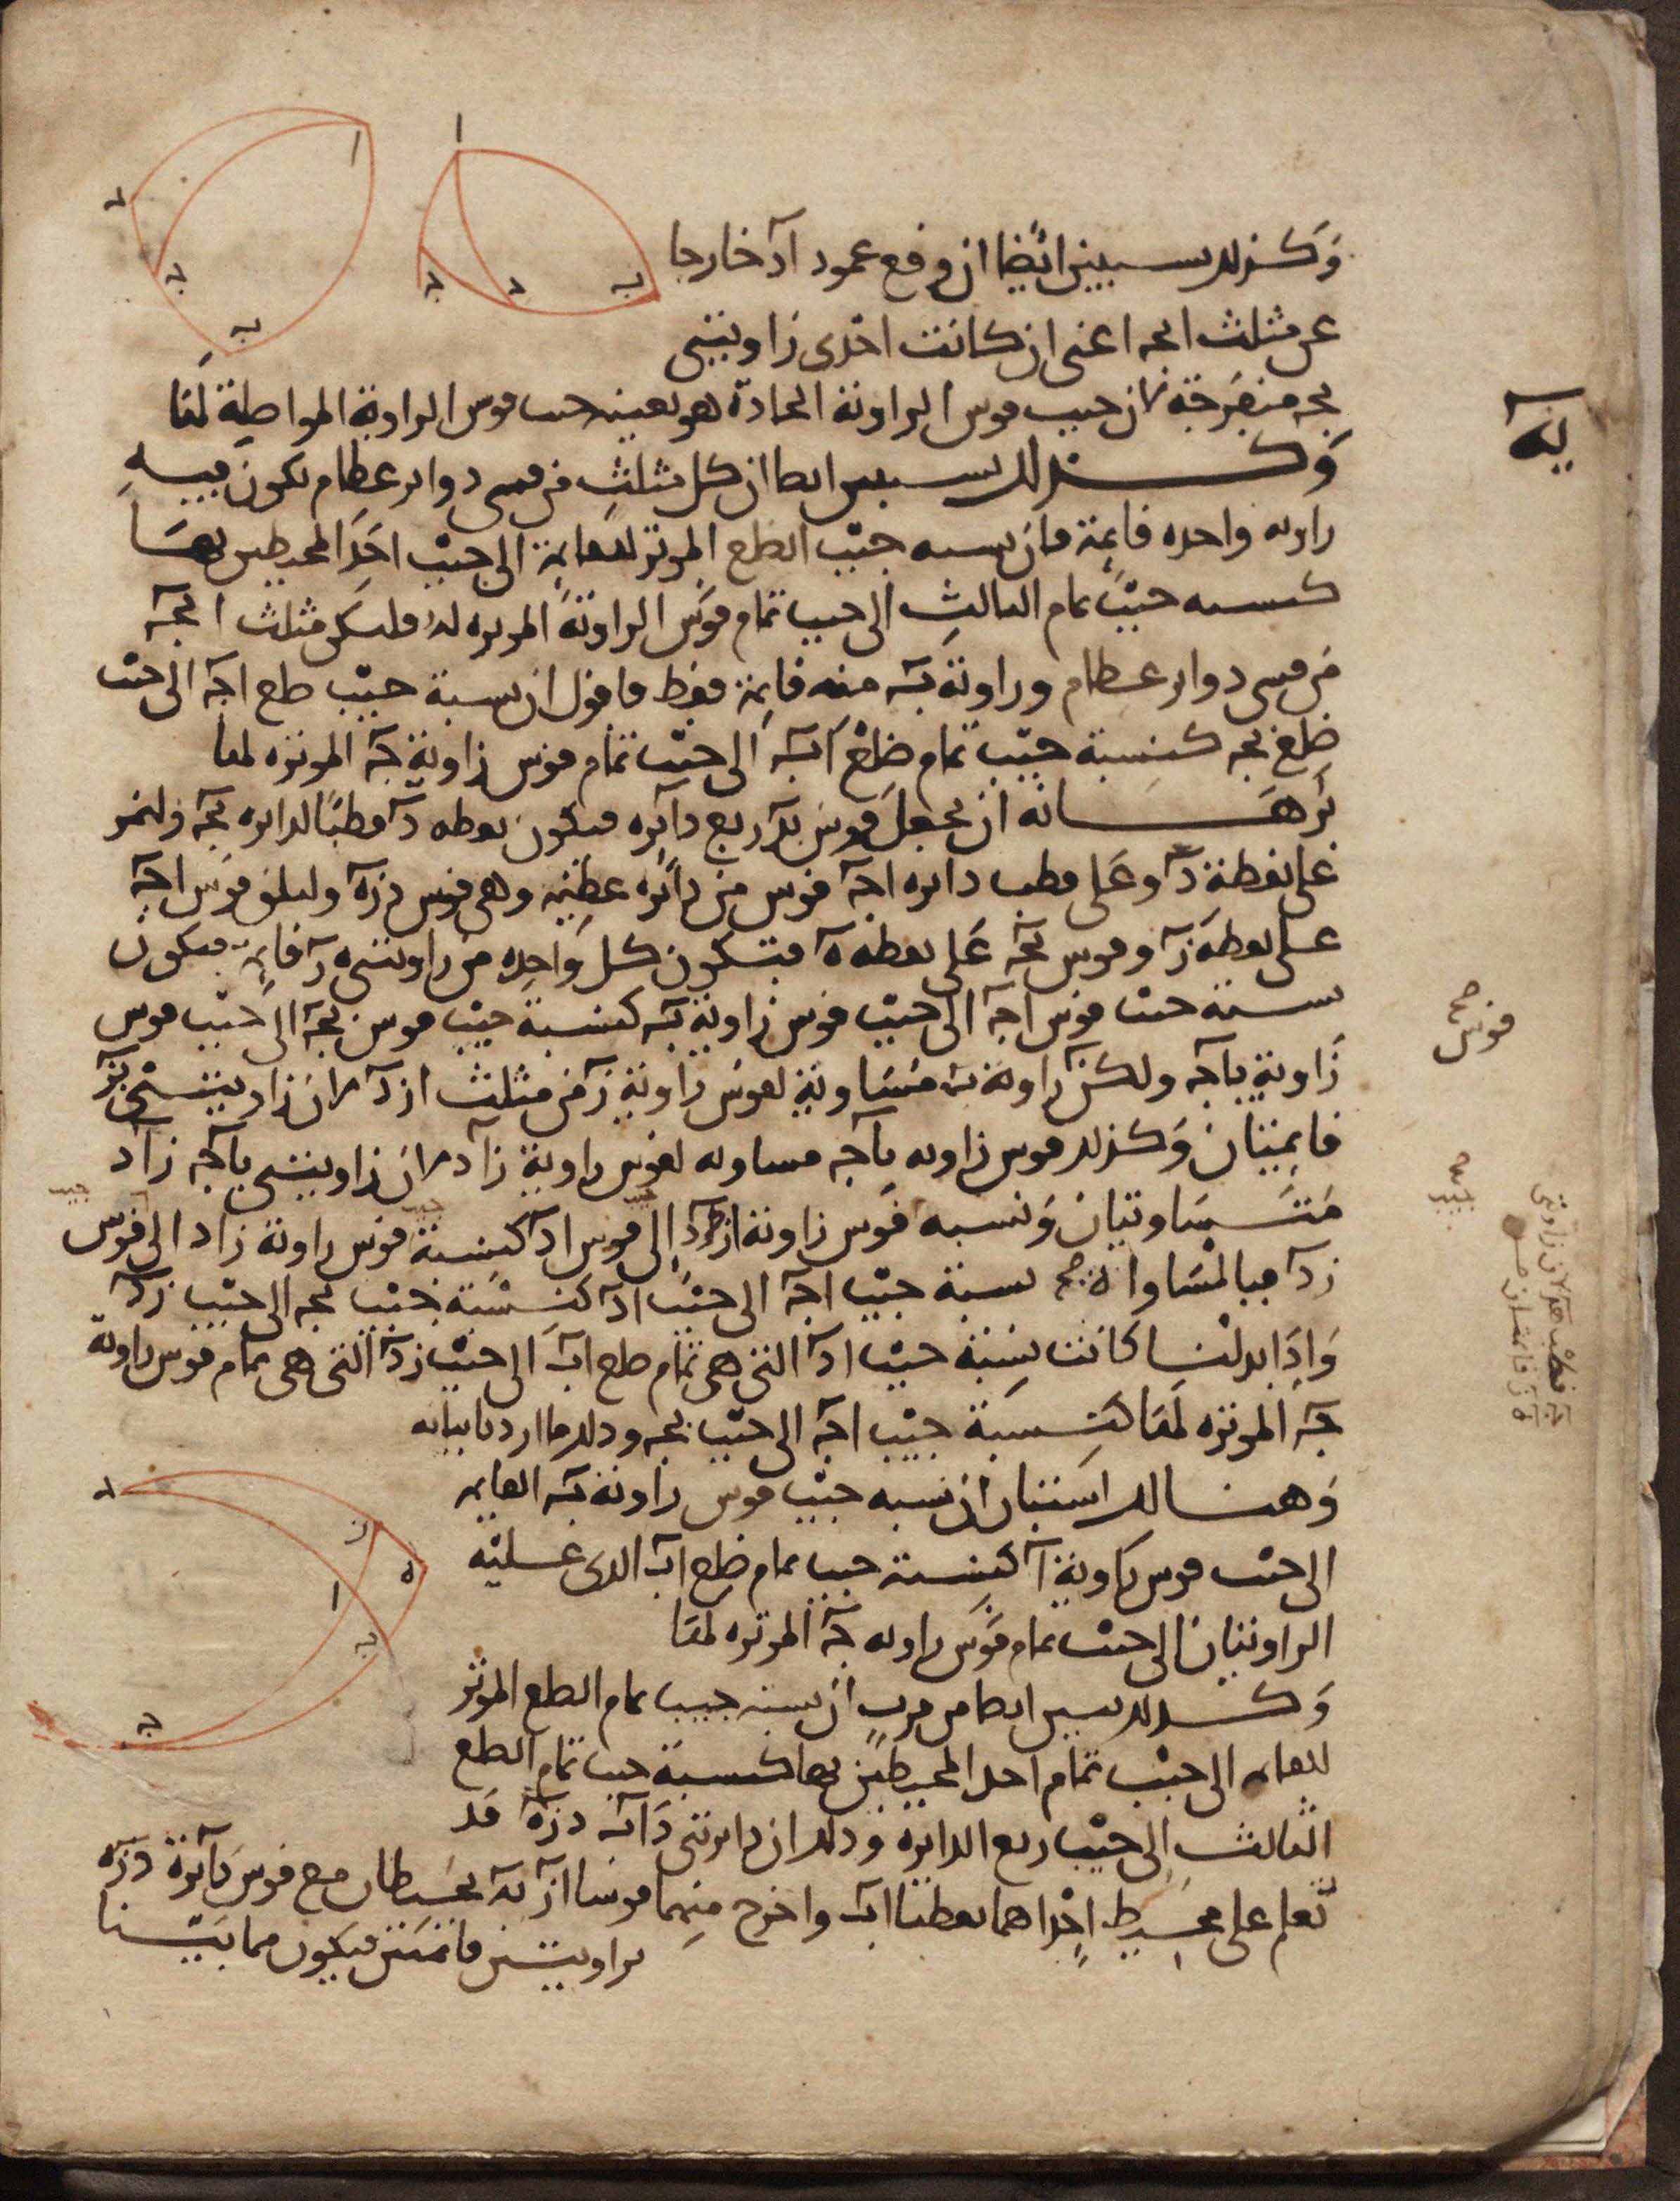 وكذلك يتبين ايضا ان وقع عمود اد خارجا
عن مثلث ابجـ اعنى ان كانت احدى زاويتى
بجـ منفرجة لان جيب قوس الزاوية الحادة هو بعينه جيب قوس الزاوية
وكذلك يتبين ايضا ان كل مثلث من قسى دوائر عظام تكون فيه
زاويه واحده قايمة فان نسبه جيب الضلع الموتر للقايمة الى جيب احد المحيطين بها
كنسبه جيب تمام الثالث الى جيب تمام قوس الزاوية الموتره له فليكن مثلث ابجـ
من قسى دوائر عظام وزاوية بـ منه قايمة فقط فاقول ان نسبة جيب ضلع اجـ الى جيب
ضلع بجـ كنسبة جيب تمام ضلع اب الى جيب تمام قوس زاوية جـ الموتره لها
برهانه ان نجعل قوس بد ربع دآيره فتكون نقطه د قطبا لدايره بجـ ولتمر
على نقطة د وعلى قطب دايره اجـ قوس من دآئره عظيمه وهى قوس دزه ولتلق قوس اجـ
على نقطة ز وقوس بجـ على نقطة ه فتكون كل واحده من زاويتى ه ز قايمة فيكون
نسبة جيب قوس اجـ الى جيب قوس زاوية بـ كنسبة جيب قوس بجـ الى جيب قوس
زاوية باجـ ولكن زاوية بـ مساوية لقوس زاوية ز من مثلث ازد لان زاويتى بز
قايمتان وكذلك قوس زاويه باجـ مساويه لقوس زاوية زاد لان زاويتى باجـ زاد
متساويتان ونسبه قوس زاوية ازد الى قوس اد كنسبة قوس زاوية زاد الى قوس
زد فبالمساواة نسبة جيب اجـ الى جيب اد كنسبة جيب بجـ الى جيب زد
واذا بدلنا كانت نسبة جيب اد التى هى تمام ضلع اب الى جيب زد التى هى تمام قوس زاوية
جـ الموتره لها كنسبة جيب اجـ الى جيب بجـ وذلك ما اردنا بيانه
وهنالك استبان ان نسبه جيب قوس زاوية بـ القايمه
الى جيب قوس زاوية ا كنسبة جيب تمام ضلع اب الذى عليه
الزاويتان الى جيب تمام قوس زاويه جـ الموتره لها
وكذلك يتبين ايضا من قرب ان نسبة جيب تمام الضلع الموتر
للقايمه الى جيب تمام احد المحيطين بها كنسبة جيب تمام الضلع
الثالث الى جيب ربع الدايره وذلك ان دايرتى داب دزه قد
تعلم على محيط احداهما نقطتا اب واخرج منهما قوسا از به يحيطان مع قوس دآئرة دزه
بزاويتين قائمتين فيكون مما بيّنا
يه
قوس صح
جيب صح
جيب
جيب
جيب
ا
د
جـ
بـ
ا
بـ
د
جـ
د
ز
ه
ا
بـ
جـ